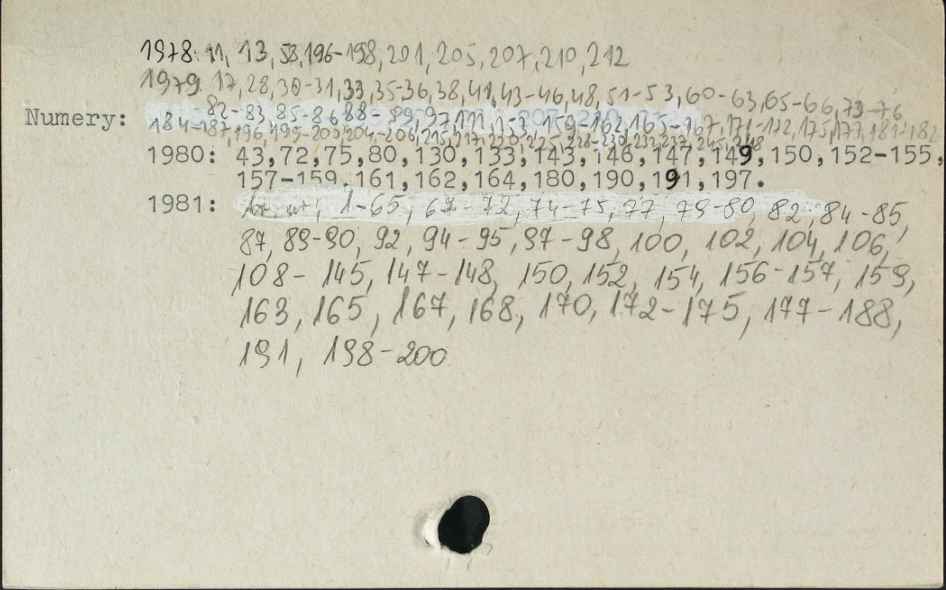 1978: 11, 13, 58, 196-198, 201, 205, 207, 210, 212
1979. 17, 28, 30-31, 33, 35-36, 38, 41, 43-46, 48, 51-53, 60-63, 65-66, 73-76
Numery: 82-83, 85-86 88-89, 97, 111, 159-162, 165-167, 171-172, 175, 177, 181-182
184-187, 196, 199-202, 204-206, 215, 217,
1980: 43,72,75,80,130,133,143,146,147,149,150,152-155,
157-159,161,162,164,180,190,191,197.
1981: 1-65, 67-72, 74-75, 77, 79-80, 82, 84-85,
87, 89-90, 92, 94-95, 97-98, 100, 102, 104, 106,
108-145, 147-148, 150, 152, 154, 156-157, 159,
163, 165, 167, 168, 170, 172-175, 177-188,
191, 198-200